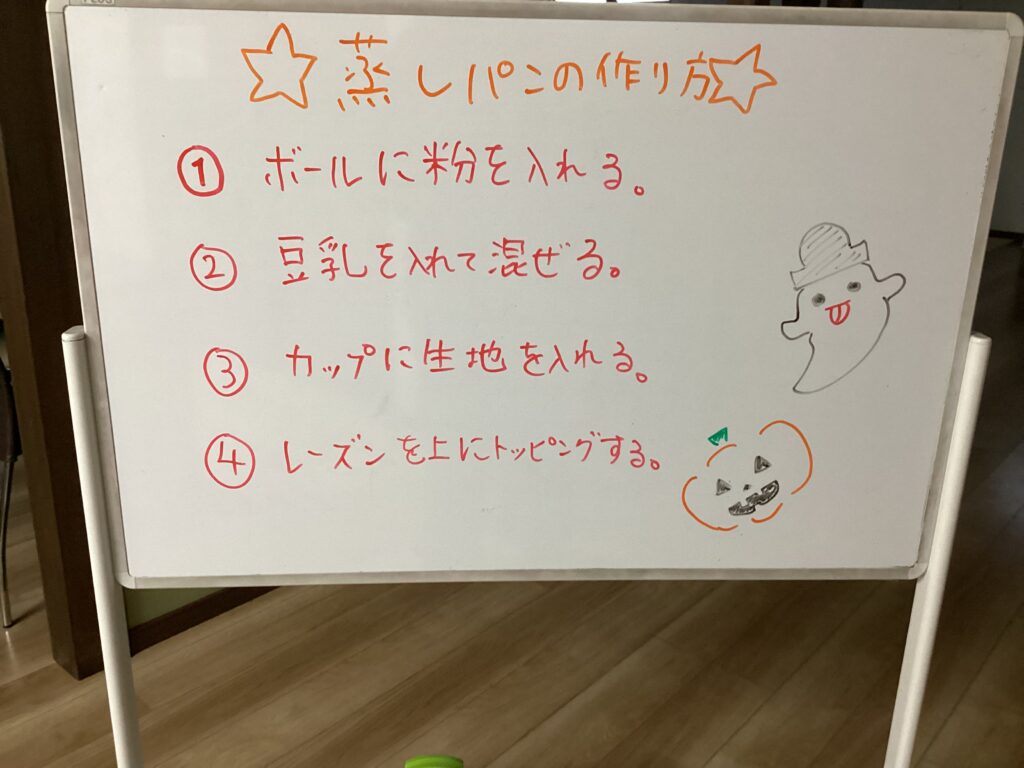 ☆蒸しパンの作り方☆
① ボールに粉を入れる。
② 豆乳を入れて混ぜる。
③ カップに生地を入れる。
④ レーズンを上にトッピングする。